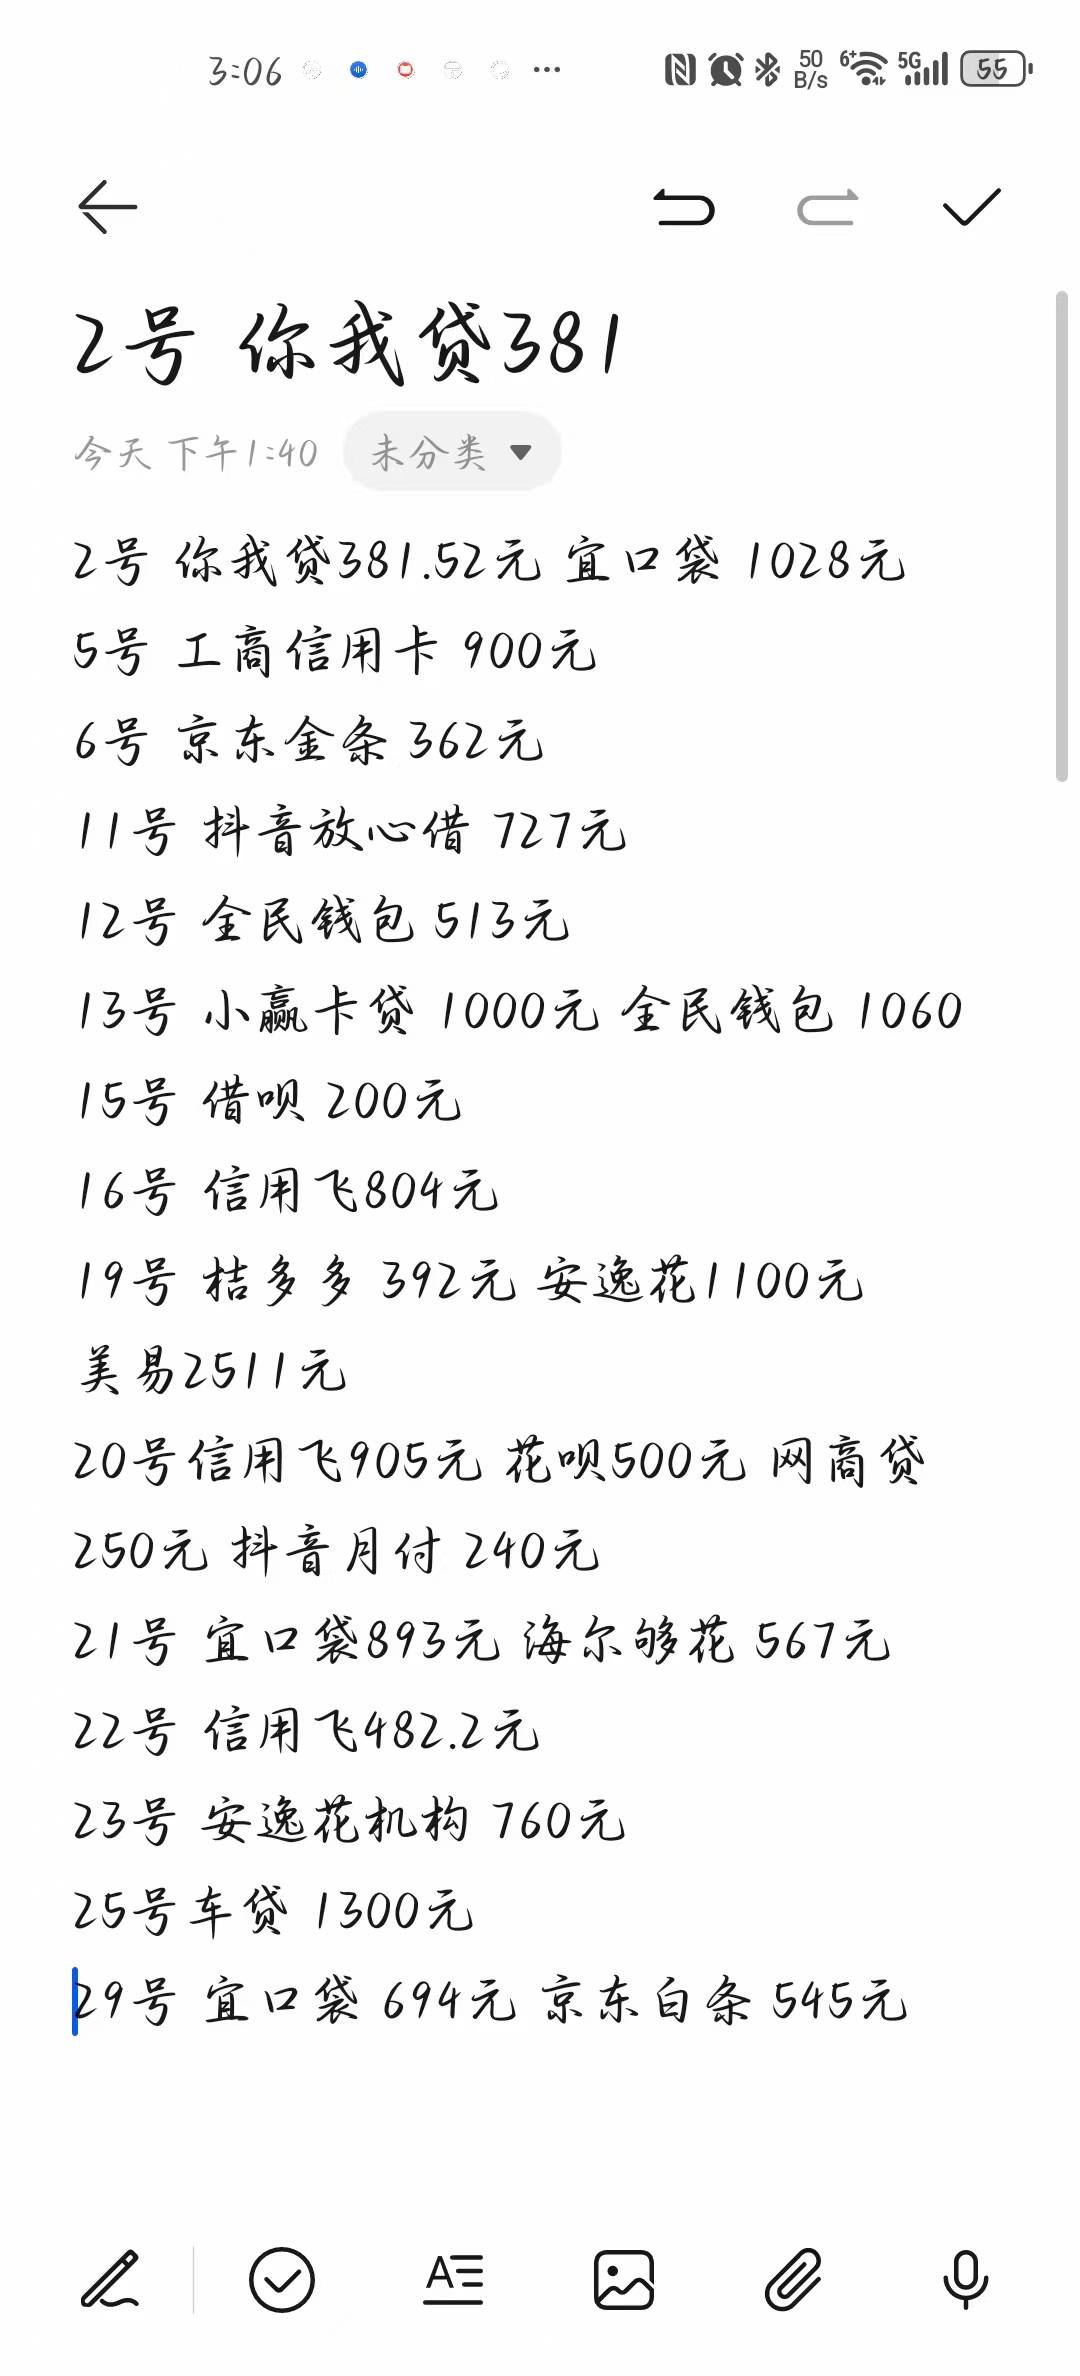 3:06 ··· 50 B/s 6+ 5G 55
2号 你我贷381
今天 下午1:40 未分类
2号 你我贷381.52元 宜口袋 1028元
5号 工商信用卡 900元
6号 京东金条 362元
11号 抖音放心借 727元
12号 全民钱包 513元
13号 小赢卡贷 1000元 全民钱包 1060
15号 借呗 200元
16号 信用飞804元
19号 桔多多 392元 安逸花1100元
美易2511元
20号信用飞905元 花呗500元 网商贷
250元 抖音月付 240元
21号 宜口袋893元 海尔够花 567元
22号 信用飞482.2元
23号 安逸花机构 760元
25号车贷 1300元
29号 宜口袋 694元 京东白条 545元